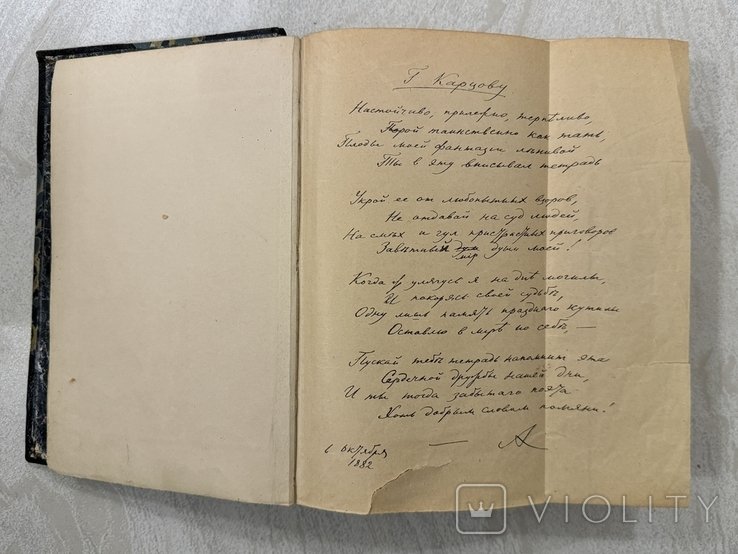 Г Карцову
Настойчиво, прилежно, терпѣливо,
Порой таинственно какъ тать,
Плоды моей фантазіи лѣнивой
Ты в эту вписывал тетрадь
Укрой ее от любопытных взоров,
Не отдавай на суд людей,
На смѣх и гул пристрастных приговоров
Завѣтный мір души моей!
Когда ж улягусь я на днѣ могилы,
И покорясь своей судьбѣ,
Одну лишь память праздного кутилы
Оставлю в мірѣ по себѣ, —
Пускай тебѣ тетрадь напомнит эта
Сердечной дружбы нашей дни,
И ты тогда забытаго поэта
Хоть добрым словом помяни!
— А
6 Октября
1882
VIOLITY